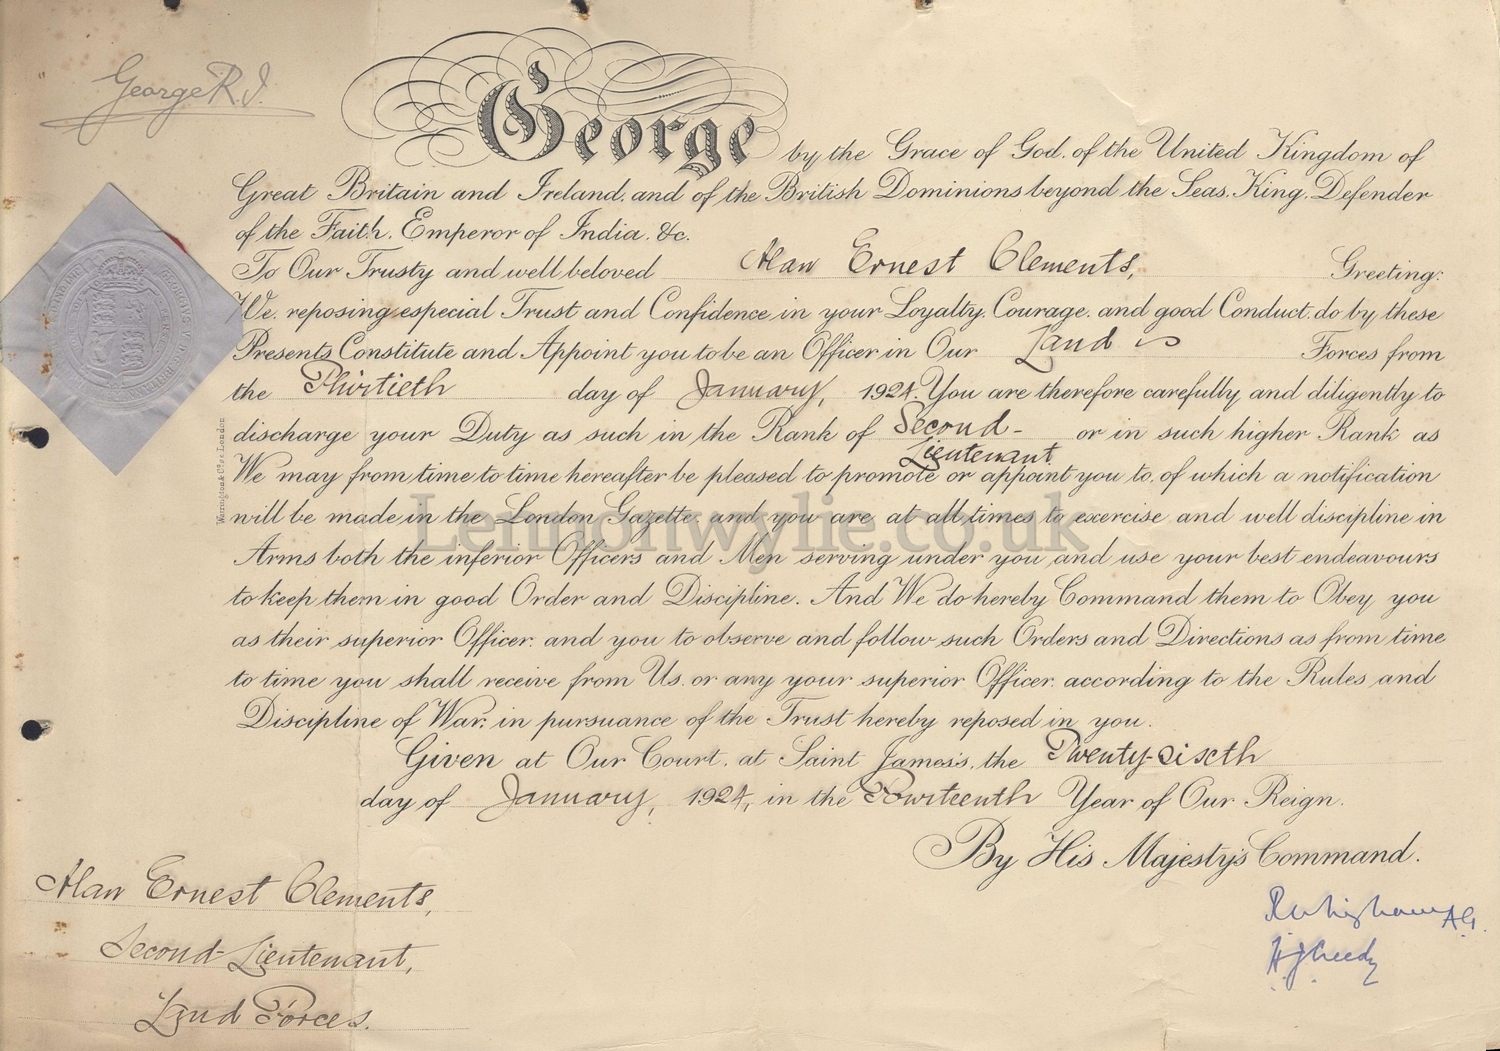 George R.I.
George by the Grace of God, of the United Kingdom of
Great Britain and Ireland, and of the British Dominions beyond the Seas, King, Defender
of the Faith, Emperor of India, &c.
To Our Trusty and well beloved Alan Ernest Clements, Greeting:
We, reposing especial Trust and Confidence in your Loyalty, Courage, and good Conduct, do by these
Presents Constitute and Appoint you to be an Officer in Our Land Forces from
the Thirtieth day of January, 1924. You are therefore carefully and diligently to
discharge your Duty as such in the Rank of Second-Lieutenant or in such higher Rank as
We may from time to time hereafter be pleased to promote or appoint you to, of which a notification
will be made in the London Gazette, and you are at all times to exercise and well discipline in
Arms both the inferior Officers and Men serving under you and use your best endeavours
to keep them in good Order and Discipline. And We do hereby Command them to Obey you
as their superior Officer, and you to observe and follow such Orders and Directions as from time
to time you shall receive from Us, or any your superior Officer, according to the Rules and
Discipline of War, in pursuance of the Trust hereby reposed in you.
Given at Our Court, at Saint James's, the Twenty-sixth
day of January, 1924, in the Fourteenth Year of Our Reign.
By His Majesty's Command.
Alan Ernest Clements,
Second-Lieutenant,
Land Forces.
A.G.
H J Creedy
Warrington & Co. London
Lennonwylie.co.uk